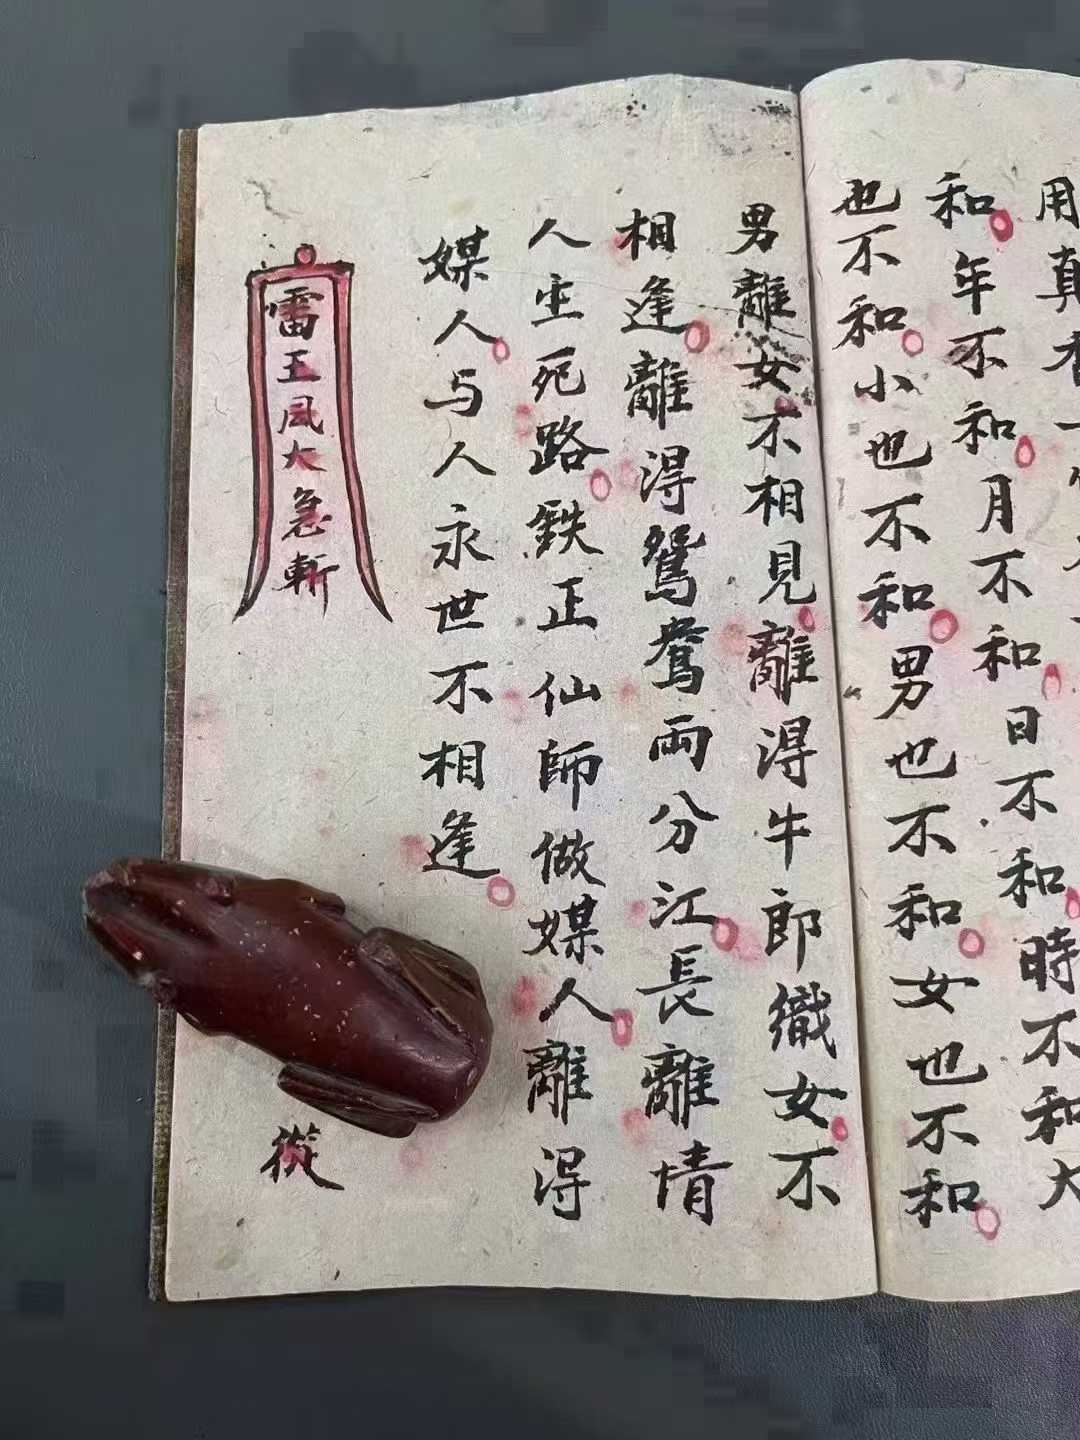 用真香一
和年不和月不和日不和時不和大
也不和小也不和男也不和女也不和
男離女不相見離得牛郎織女不
相逢離得鴛鴦兩分江長離情
人主死路鉄正仙師做媒人離得
媒人与人永世不相逢
雷王凬大急斬
從